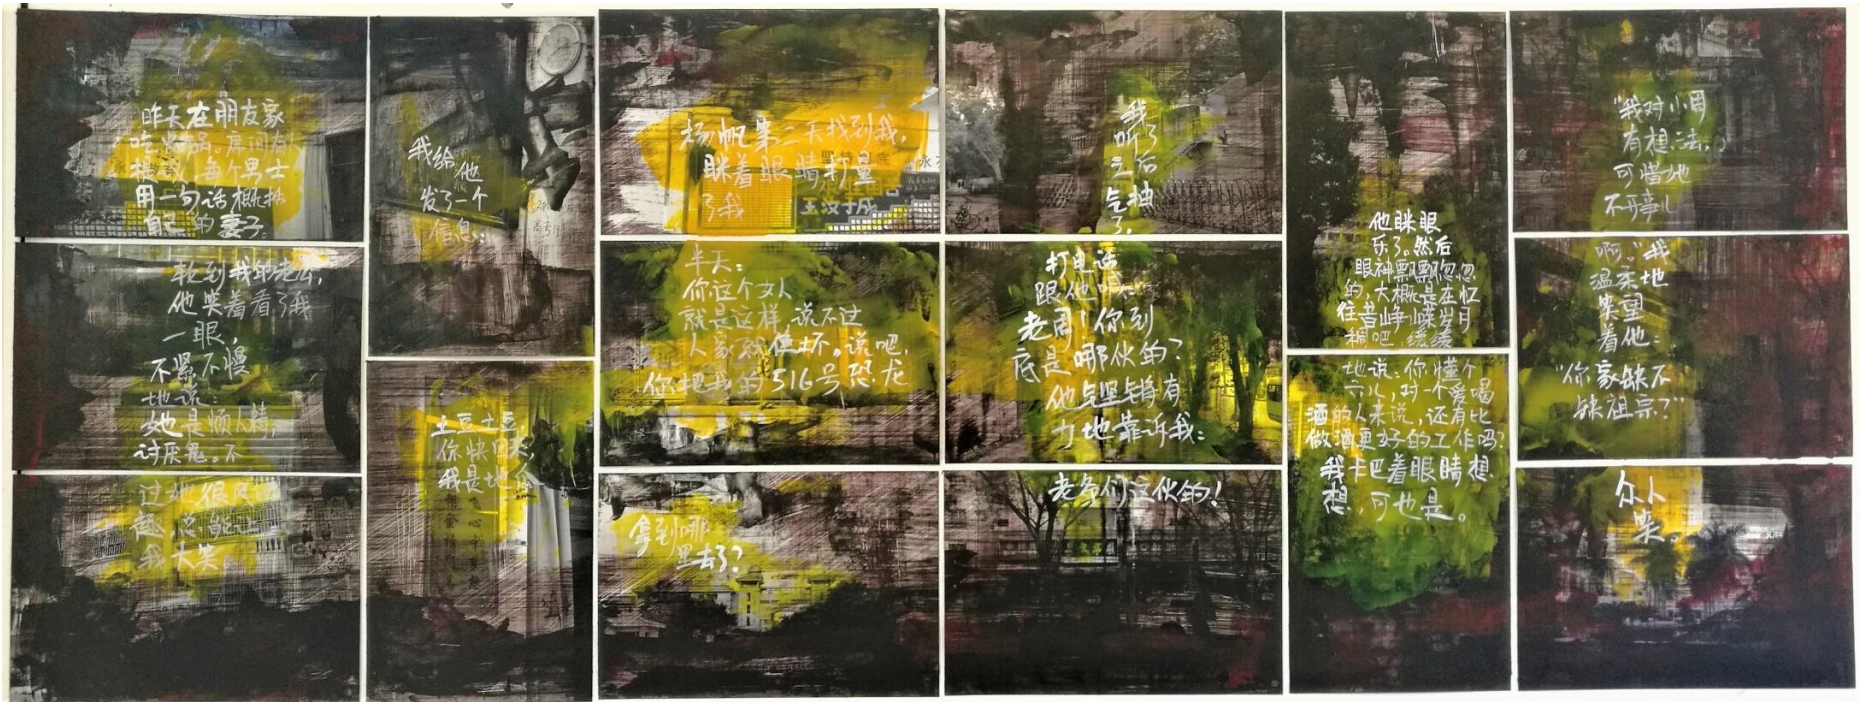 昨天在朋友家
吃火锅。席间有人
提议每个男士
用一句话概括
自己的妻子。
轮到我的老公,
他笑着看了我
一眼,
不紧不慢
地说:
她是烦人精,
讨厌鬼。不
过她很风
趣总能
我大笑。
我给他
发了一个
信息:
土豆土豆,
你快回来,
我是地瓜
杨帆第二天找到我,
眯着眼睛打量
了我
半天:
你这个女人
就是这样,说不过
人家就使坏。说吧,
你把我的516号恐龙
拿到哪
里去了?
我
听了
之后
气抽
了。
打电话
跟他喊:
老周!你到
底是哪伙的?
他铿锵有
力地靠诉我:
老爷们这伙的!
他眯眼
乐了。然后
眼神飘飘忽忽
的,大概是在忆
往昔峥嵘岁月
稠吧,缓缓
地说:你懂个
六儿,对一个爱喝
酒的人来说,还有比
做酒更好的工作吗?
我卡巴着眼睛想
想,可也是。
“我对小周
有想法,
可惜她
不开事儿
啊。”我
温柔地
笑望
着他:
“你家缺不
缺祖宗?”
众人
笑。